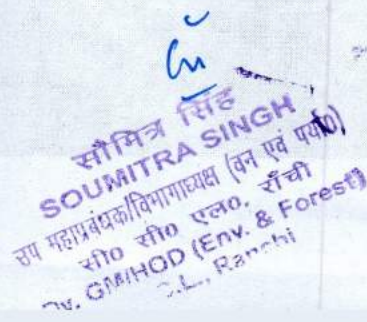 सौमित्र सिंह
SOUMITRA SINGH
उप महाप्रबंधक/विभागाध्यक्ष (वन एवं पर्या०)
सी० सी० एल०, राँची
Dy. GM/HOD (Env. & Forest)
C.C.L., Ranchi